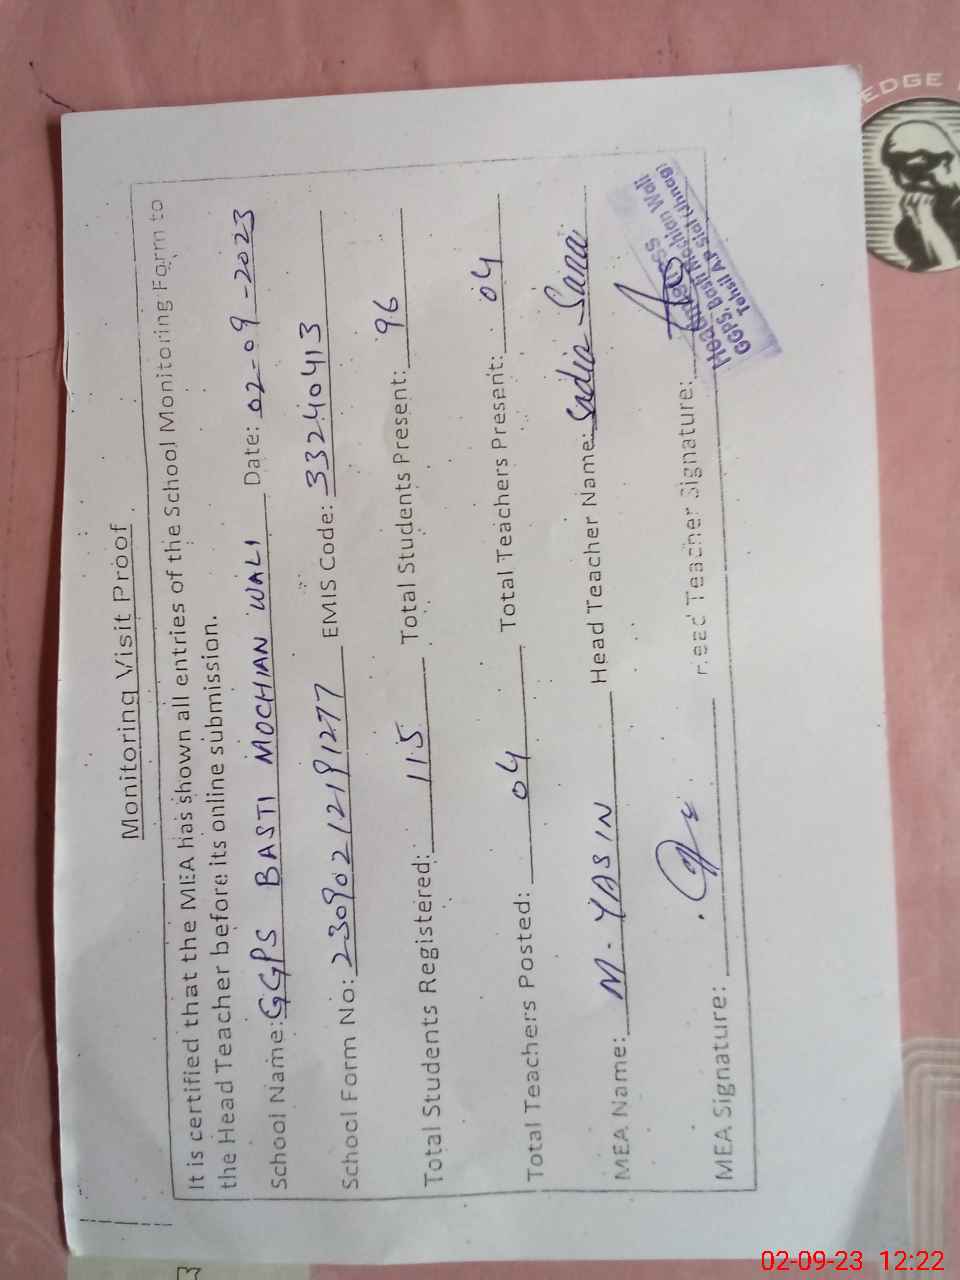 Monitoring Visit Proof
It is certified that the MEA has shown all entries of the School Monitoring Form to
the Head Teacher before its online submission.
School Name: GGPS BASTI MOCHIAN WALI Date: 02-09-2023
School Form No: 23090212191277 EMIS Code: 33240413
Total Students Registered: 115 Total Students Present: 96
Total Teachers Posted: 04 Total Teachers Present: 04
MEA Name: M. YASIN Head Teacher Name: Sadia Sana
MEA Signature: Head Teacher Signature:
Headmistress
GGPS, Basti Mochian Wali
Tehsil A.P Sial (Jhang)
EDGE
02-09-23 12:22